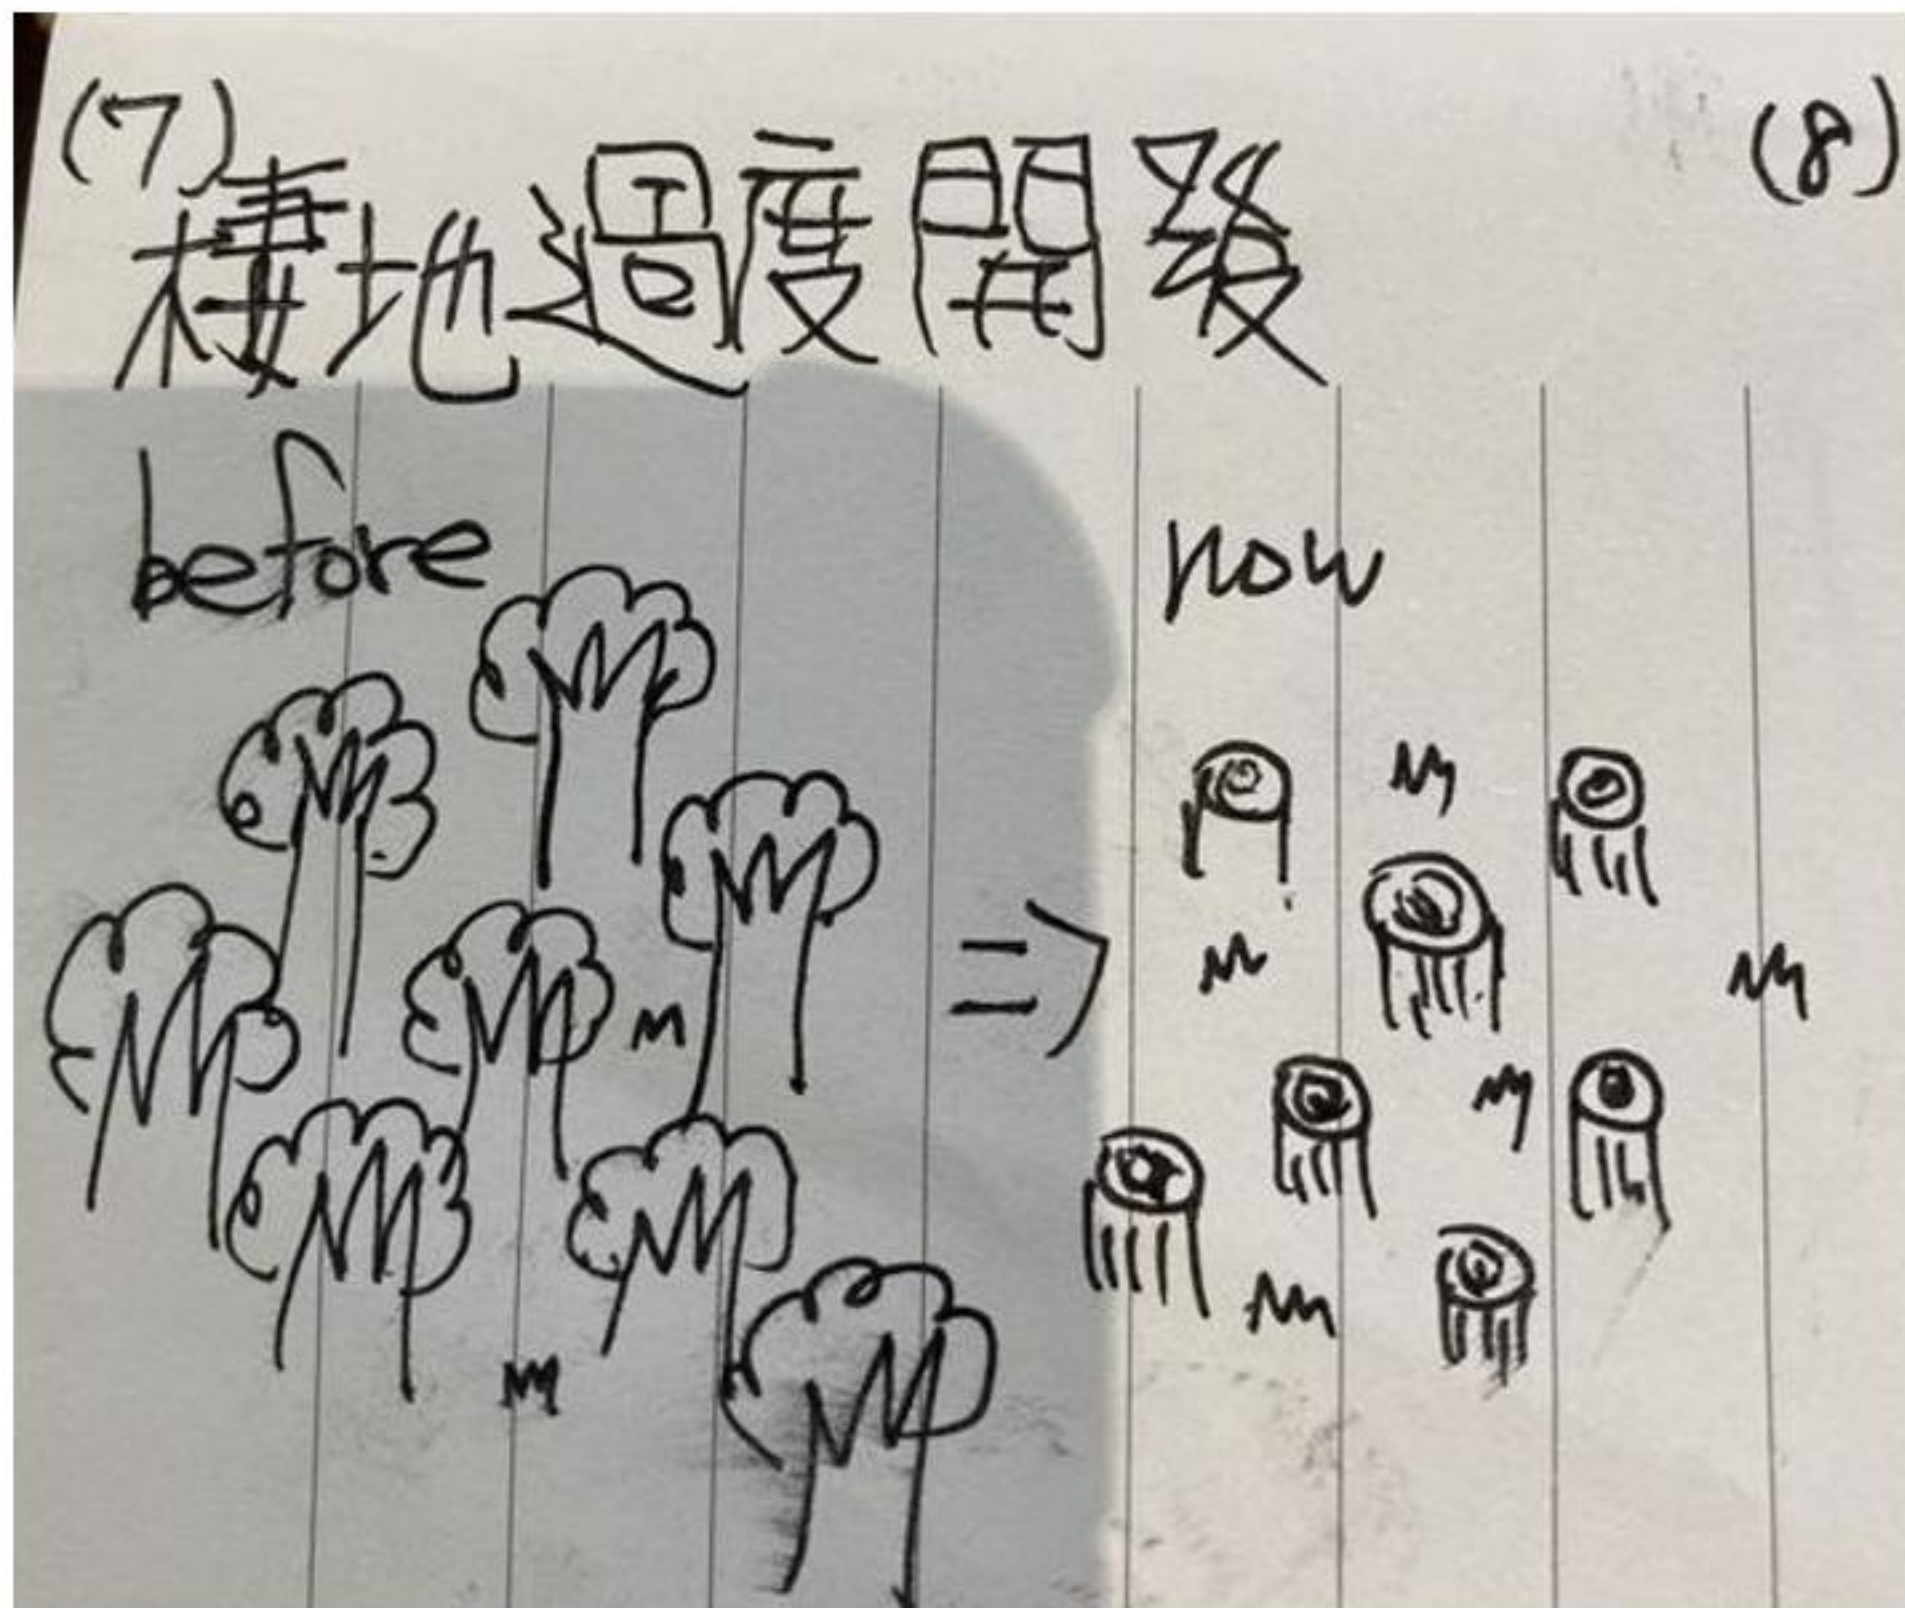 (7) (8)
棲地過度開發
before now